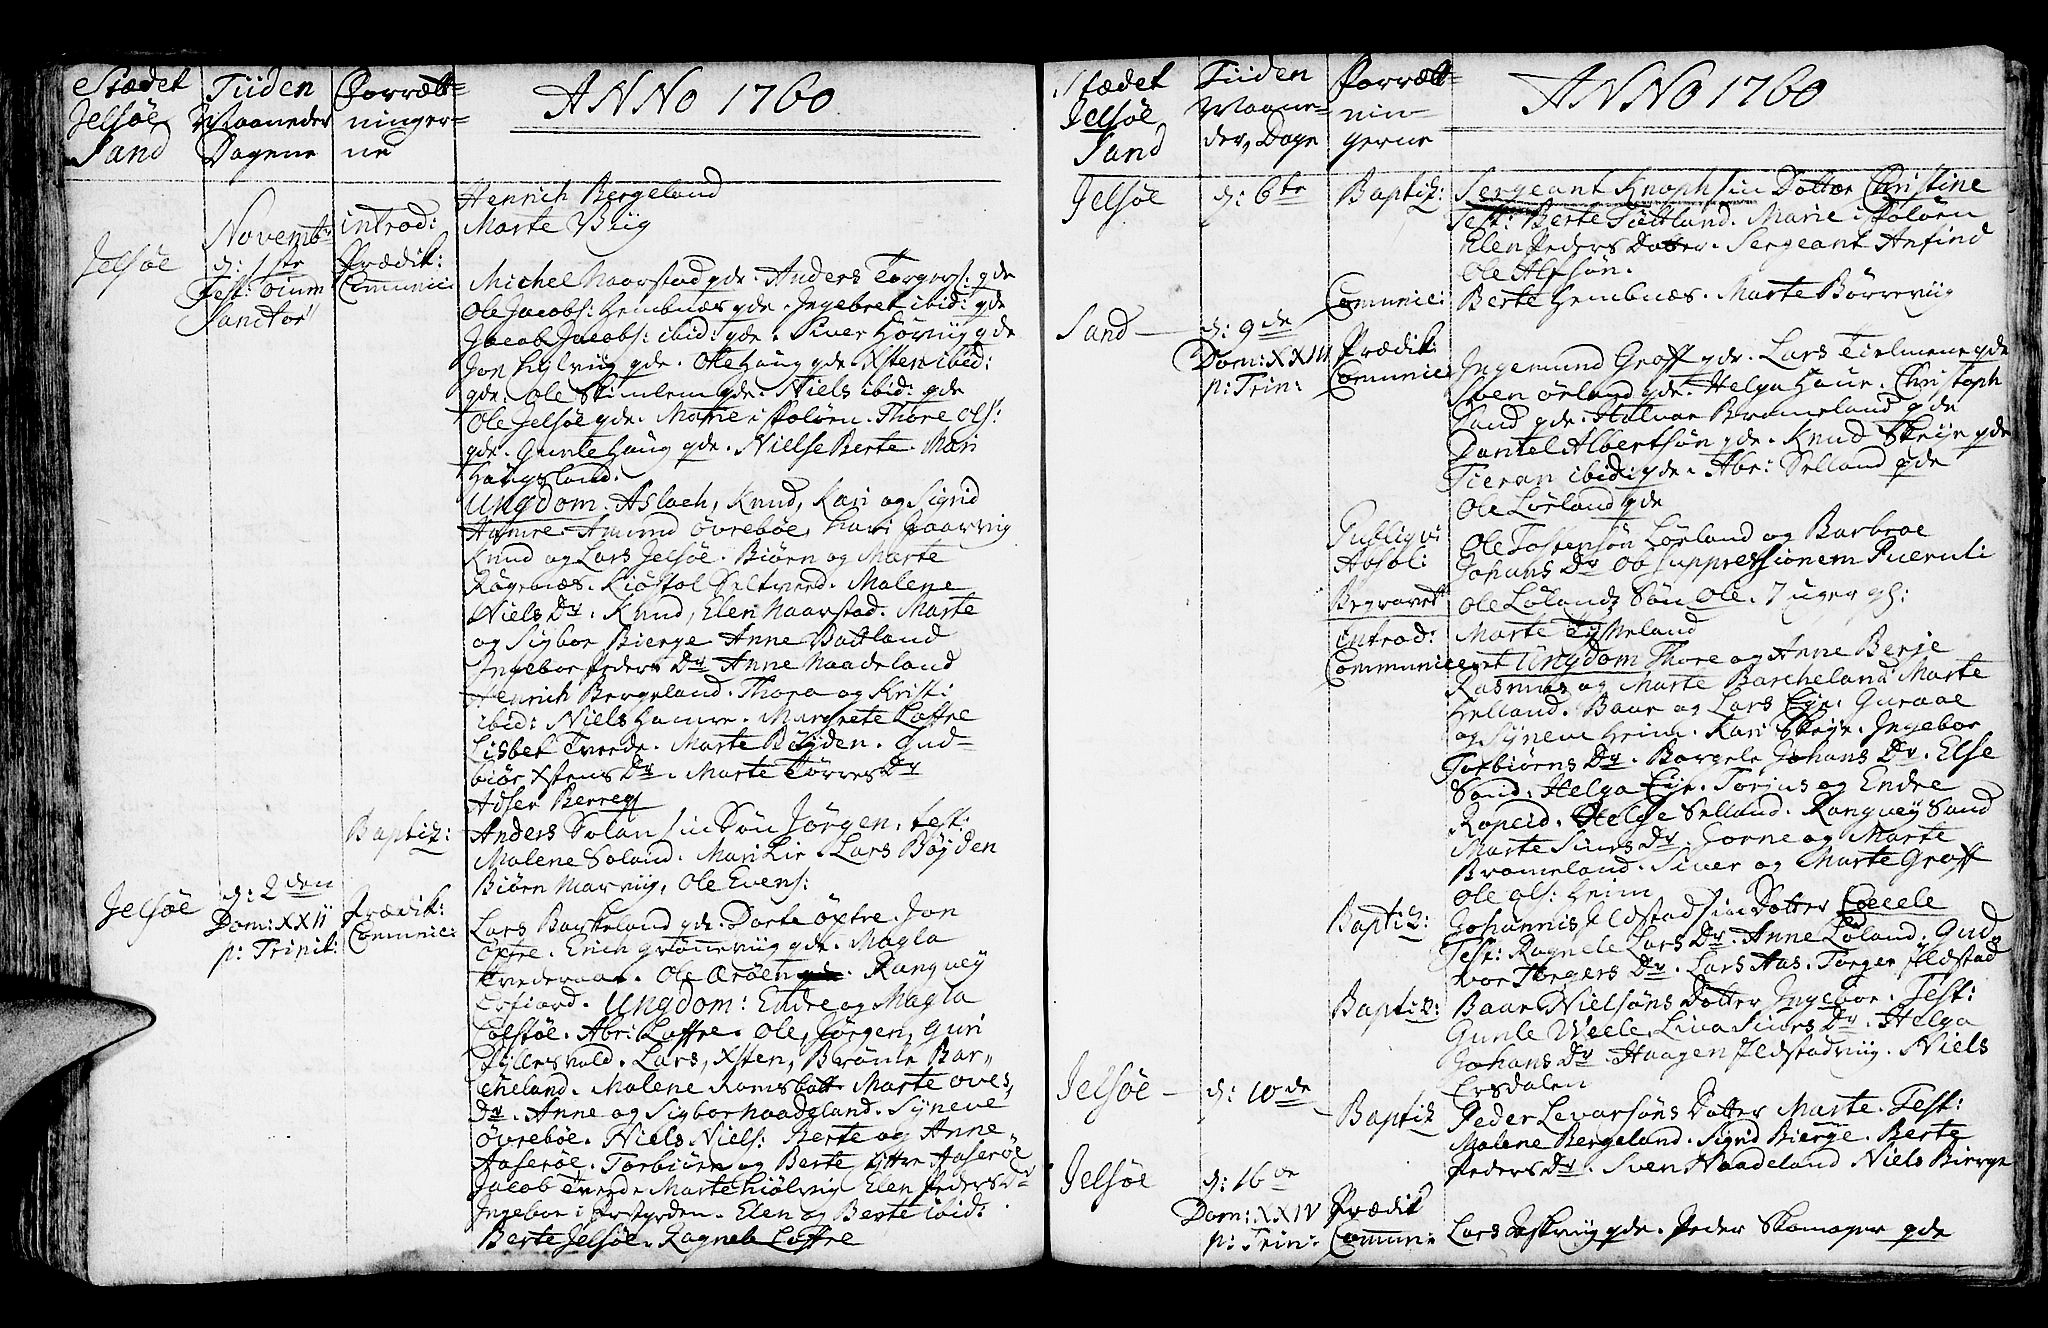 Stædet
Jelsøe
Sand
Tiiden
Maaneder
Dagene
Forrætt=
ninger=
ne
ANNO 1760
Henrich Bergeland
introd: Marte Viig
Jelsøe
Novembr
d: 1ste
Fest: Oium
Sanctor
Prædik:
Comunici
Michel Naarstad gde. Anders Torgers: gde
Ole Jacobs: Hembnæs gde. Ingebret ibid: gde
Jacob Jacobs: ibid: gde. Siver Hørviig gde
Jon Hylviig gde. Ole Haug gde. Xsten ibid:
gde. Ole Skimlem gde. Niels ibid: gde
Ole Jelsøe gde. Marie i Foløen. Thore Ols:
gde. Gunle Haug gde. Nielse Berte. Mari
Høugsland.
Ungdom. Aslach, Knud, Kari og Sigrid
Hamre. Amund Øvrebøe, Kari Gaarvig
Knud og Lars Jelsøe. Biørn og Marte
Røgenæs. Kiøstol Seltveed. Malene
Niels Dr. Knud, Elen Naarstad. Marte
og Sigbor Bierge Anne Battland
Ingebor Peders Dr Anne Naadeland
Henrich Bergeland. Thora og Krist:
ibid: Niels Hamre. Margrete Løffre
Lisbet Tveede. Marte Bøyden. Gud=
biør Xstens Dr. Marte Tørres Dr
Adser Berreg
Baptiz: Anders Solan sin Søn Jørgen. test:
Malene Soland. Mari Lie. Lars Bøyden
Biørn Marviig, Ole Evens:
Jelsøe
d: 2den
Dom: XXII
p: Trinit:
Prædik:
Comunici:
Lars Barkeland gde. Dorte Øxtre. Jon
Øxtre. Erich Grøneviig gde. Magla
Ole Ærøen. Ranguey
Lofiord. Ungdom: Endre og Magla
Løsstøe. Abr: Løffre. Ole, Jørgen, Guri
Lars, Xsten, Berønte Bar=
cheland. Malene Ramsbatt Marte Oves
Dr. Anne og Sigbor Naadeland. Syneve
Øvrebøe. Niels Niels: Berte og Anne
Aaserøe. Torbiørn og Berte Yttre Aaserøe
Jacob Tveede Marte Hiølvig Elen Peders Dr
Ingebor i Præstgrden. Elen og Berte ibid:
Berte Jelsøe. Ragnele Løffre
Stædet
Jelsøe
Sand
Tiiden
Maane=
der, Dage
Forrætt=
nin=
gerne
ANNO 1760
Jelsøe d: 6te Baptiz: Sergeant Knoph sin Dotter Christine
Test: Berte Tüttland. Marie i Foløen
Elen Peders Dotter. Sergeant Anfind
Ole Alfsøn.
Comunic: Berte Hembnæs. Marte Børreviig
Sand d: 9de
Dom: XXIII
p: Trin:
Prædik:
Comunic:
Ingemund Graff gde. Lars Tielmene gde
Sven Ørland gde. Helga Haue. Christoph
Sand gde. Halvor Brameland gde
Daniel Albertsøn gde. Knud Skeije gde
Tieran ibid: gde. Abr: Selland gde
Ole Lørland gde
Publiqvi
Absol:
Ole Tostensøn Lørland og Barbroe
Johans Dr ob suppressionem Pueruli
Begravet Ole Lølands Søn Ole. 7 uger gl:
introd: Marte Tysseland
Communiceret Ungdom Thore og Anne Berje
Rasmus og Marte Barcheland Marte
Helland. Baar og Lars Eije: Guraae
og Syneve Heim. Kari Skeije. Ingebor
Torbiørns Dr. Borgele Johans Dr. Else
Sand: Helga Eije. Torjus og Endre
Ropeid. Helge Selland. Ranguey Sand
Marte Siurs Dr Gorne og Marte
Brameland. Siver og Marte Graff
Ole Ols: Heim
Baptiz: Johannis Fidstad sin Dotter Cecele
Test: Ragnele Lars Dr. Anne Løland. Gud=
bor Torgers Dr. Lars Aas. Torger Fidstad
Baptiz: Baar Nielsøns Dotter Ingebor. Test:
Gunle Weele, Lina Siurs Dr. Helga
Johans Dr. Haagen Fidstadviig. Niels
Eersdalen
Jelsøe d: 10de Baptiz Peder Levarsøns Dotter Marte. Test:
Malene Bergeland. Sigrid Bierge. Berte
Peders Dr. Sven Naadeland Niels Bierge
Jelsøe d: 16de
Dom: XXIV
p: Trin:
Prædik
Comuni: Lars Foskviig gde. Peder Skomager gde